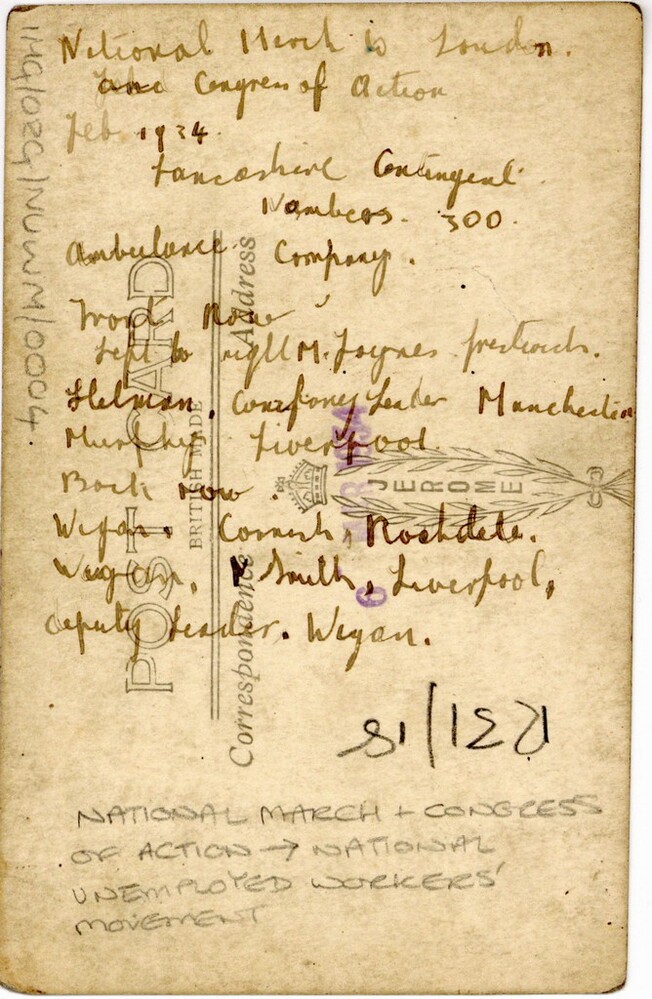 National March to London.
and Congress of Action
Feb 1934.
Lancashire Contingent.
Numbers. 300.
Ambulance Company.
Front Row
Left to right M. Joynes Prestwich.
Helman, Company Leader Manchester
Murphy, Liverpool.
Back row.
Wigan. Cornish, Rochdale.
Smith, Liverpool,
deputy Leader. Wigan.
NATIONAL MARCH + CONGRESS
OF ACTION → NATIONAL
UNEMPLOYED WORKERS'
MOVEMENT
POST CARD
BRITISH MADE
Correspondence
Address
JEROME